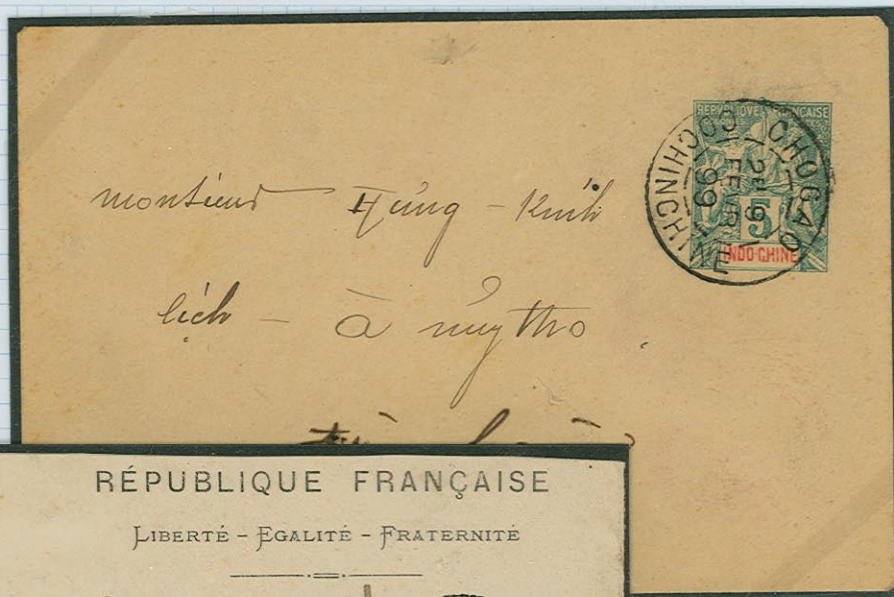 RÉPUBLIQUE FRANÇAISE
5
INDO-CHINE
CHOGAO
2E
9
FEVR
99
COCHINCHINE
monsieur Hứng - Kinh
lịch - à mỹtho
RÉPUBLIQUE FRANÇAISE
LIBERTÉ - EGALITÉ - FRATERNITÉ